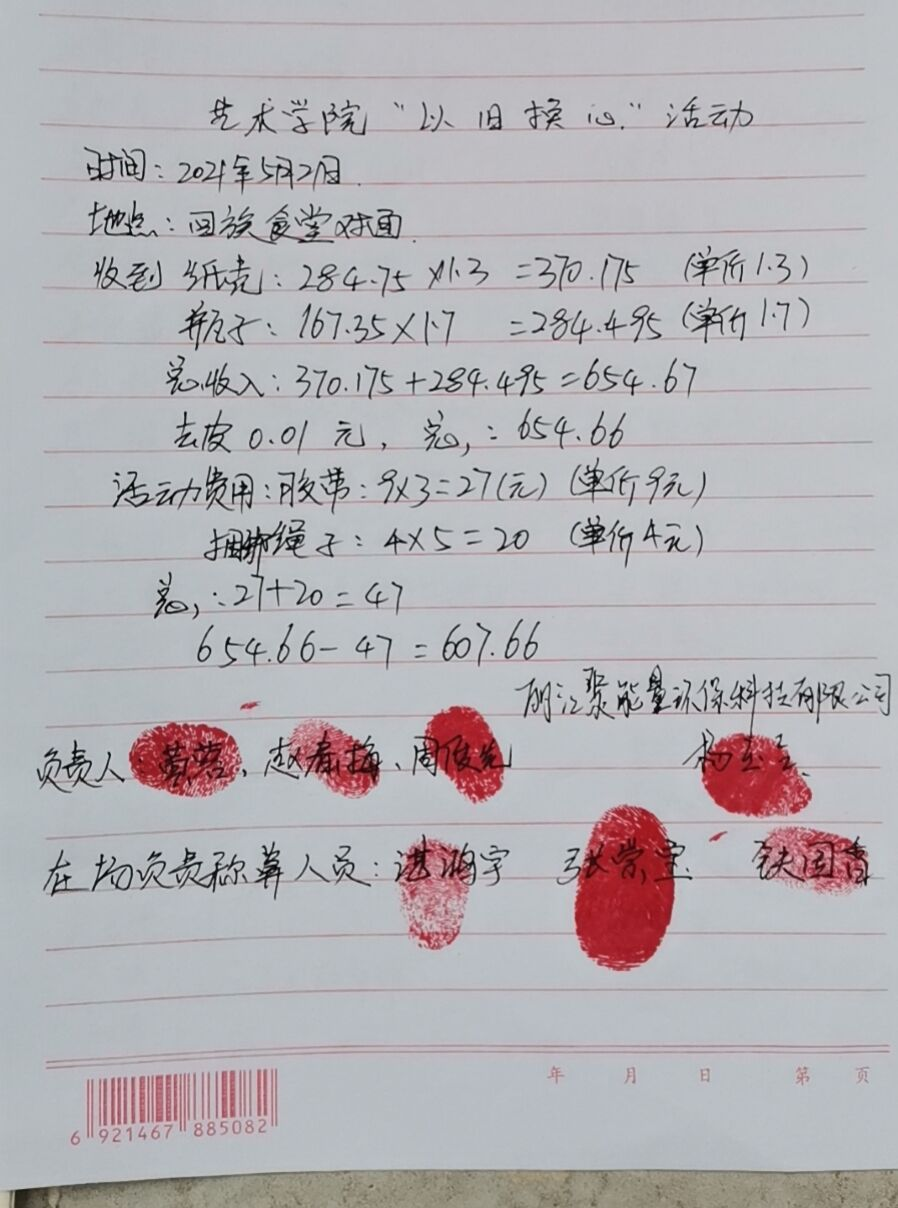 艺术学院“以旧换心”活动
时间：2021年5月21日.
地点：回族食堂对面.
收到 纸壳：284.75×1.3 =370.175 (单价1.3)
瓶子：167.35×1.7 =284.495 (单价1.7)
总收入：370.175+284.495=654.67
去皮0.01元，总：654.66
活动费用：胶带：9×3=27(元) (单价9元)
捆绑绳子：4×5=20 (单价4元)
总：27+20=47
654.66-47=607.66
丽江聚能量环保科技有限公司
负责人：黄蓉、赵春梅、周俊先 杨
在场负责称算人员：湛鸿宇 张荣宝 铁国香
年 月 日 第 页
6 921467 885082